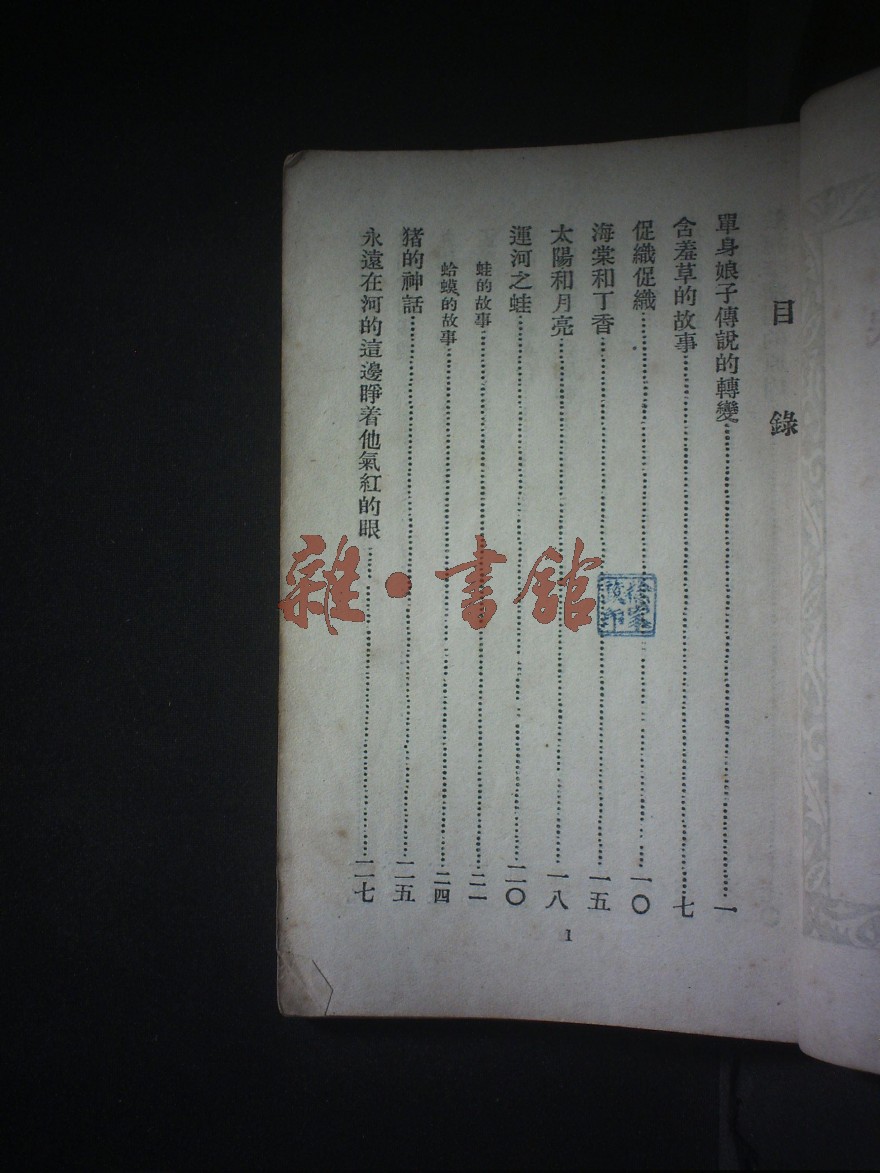 目錄
單身娘子傳說的轉變……一
含羞草的故事……七
促織促織……一〇
海棠和丁香……一五
太陽和月亮……一八
運河之蛙……二〇
蛙的故事……二一
蛤蟆的故事……二四
猪的神話……二五
永遠在河的這邊睜着他氣紅的眼……二七
1
雜·書館